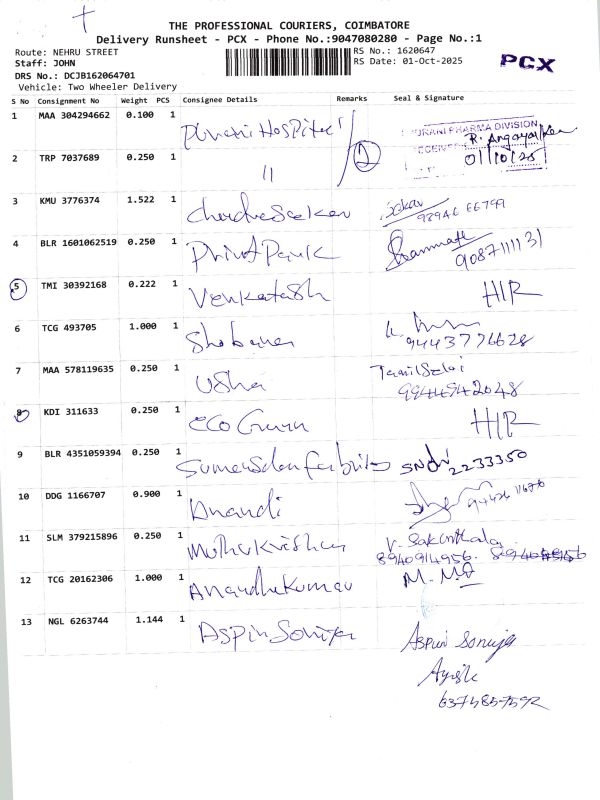 THE PROFESSIONAL COURIERS, COIMBATORE
Delivery Runsheet - PCX - Phone No.:9047080280 - Page No.:1
Route: NEHRU STREET
Staff: JOHN
DRS No.: DCJB162064701
Vehicle: Two Wheeler Delivery
RS No.: 1620647
RS Date: 01-Oct-2025
PCX
S No Consignment No Weight PCS Consignee Details Remarks Seal & Signature
1 MAA 304294662 0.100 1 PHARMA DIVISION
R. 01/10/25
2 TRP 7037689 0.250 1 11
3 KMU 3776374 1.522 1 Sekar 98946 66799
4 BLR 1601062519 0.250 1 9087111131
5 TMI 30392168 0.222 1 Venkatash H/R
6 TCG 493705 1.000 1 Shobana 9443776628
7 MAA 578119635 0.250 1 Usha Tamil Selvi
9944942048
8 KDI 311633 0.250 1 Eco Green H/R
9 BLR 4351059394 0.250 1 2233350
10 DDG 1166707 0.900 1 Anandi
11 SLM 379215896 0.250 1 Muthukrishnan V. Sakunthala
8940914956.
12 TCG 20162306 1.000 1 Anandhakumar
13 NGL 6263744 1.144 1 Aspin Soniya
Aspin Soniya